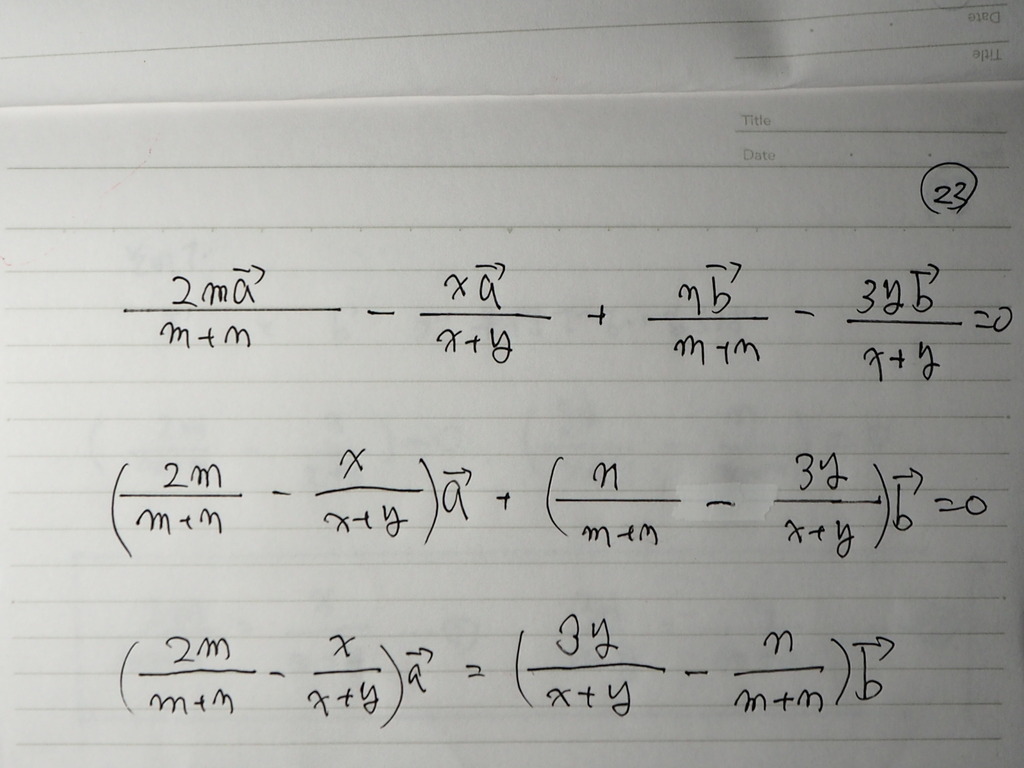 Date
Title
Title
Date
(23)
\frac{2m\vec{a}}{m+n} - \frac{x\vec{a}}{x+y} + \frac{n\vec{b}}{m+n} - \frac{3y\vec{b}}{x+y} = 0
\left(\frac{2m}{m+n} - \frac{x}{x+y}\right)\vec{a} + \left(\frac{n}{m+n} - \frac{3y}{x+y}\right)\vec{b} = 0
\left(\frac{2m}{m+n} - \frac{x}{x+y}\right)\vec{a} = \left(\frac{3y}{x+y} - \frac{n}{m+n}\right)\vec{b}